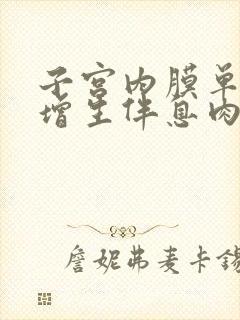 子宫内膜单
增生伴息肉
詹妮弗麦卡锡